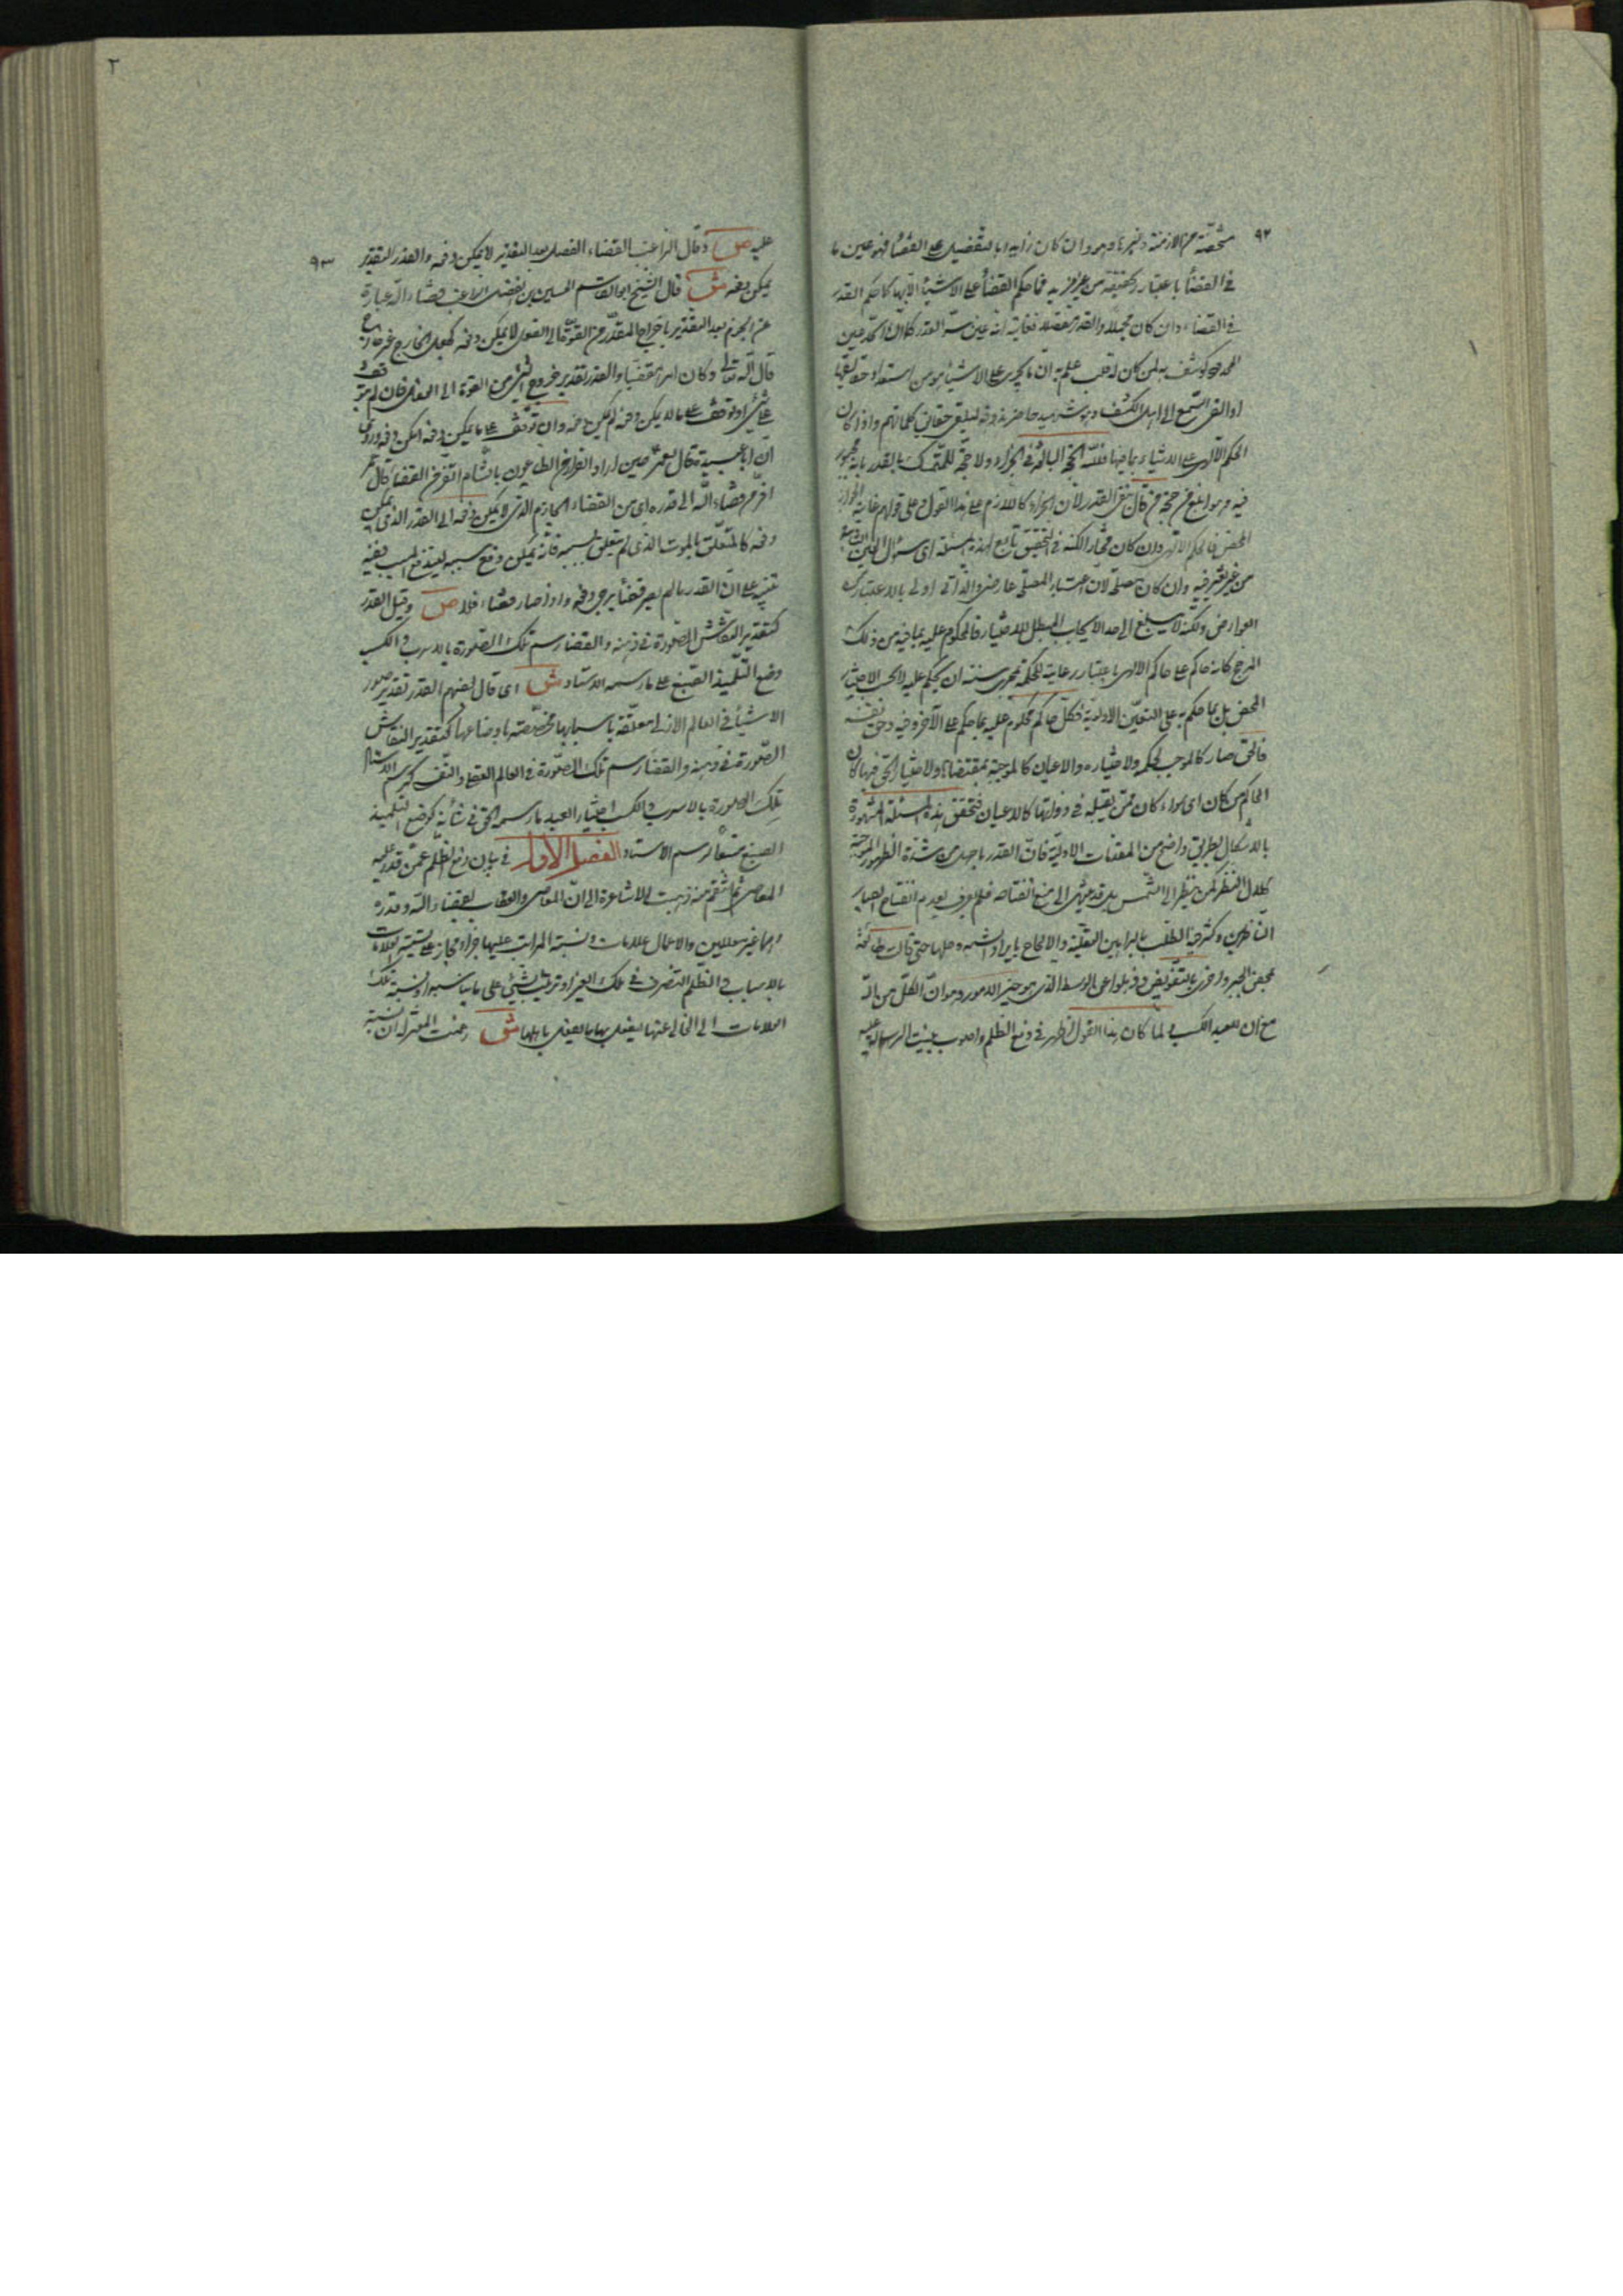 ٩٢
مختصة من الازمنة وغيرها وهو وان كان زايدا بالتفصيل على القضا فهو عين ما
في القضا باعتبار الحقيقة من غير مزيد فما حكم القضا على الاشياء الا بها كما حكم القدر
في القضاء وان كان مجملا والقدر مفصلا فغايته انه عين سر القدر كما ان الحد عين
المحدود كوشف به لمن كان له قلب علم به ان ما يجرى على الاشياء هو من استعداد حقايقها
او القى السمع الى اهل الكشف وهو شهيد حاضر بذوقه ليلقى حقايق كلماتهم واذا كان
الحكم الالهى على الاشياء بما فيها فلله الحجة البالغة في الجزاء ولا حجة للمتمسك بالقدر بانه مجبور
فيه وهو ابلغ من حجة من قال بنفى القدر لان الجزاء كاللازم على هذا القول وعلى قولهم غايته الجواز
المحض فالحاكم الالهى وان كان مختارا لكنه في التحقيق تابع لهذه المسئلة اى سؤال العين
من غير تغير فيه وان كان مصلحة لان اعتبار المصلحة عارض والذاتى اولى بالاعتبار من
العوارض ولكنه لا يبلغ الى حد الايجاب المبطل للاختيار فالمحكوم عليه بما فيه من ذلك
المرجح كانه حاكم على حاكم الالهى باعتبار رعاية للحكمة مجرى سنته ان يحكم عليه لا بحسب الاختيار
المحض بل بما حكم به على التعين الاولية فكل حاكم محكوم عليه بما حكم على الآخر وفيه وحق نفسه
فالحق صار كالموجب لحكمه ولاختياره والاعيان كالموجبة بمقتضاها ولاختيار الحق فيها كان
الحاكم من كان اى سواء كان ممن يقبله في ذواتها كالاعيان فتحقق هذه المسئلة المشهورة
بالاشكال بطريق واضح من المقدمات الاولية فان القدر ما جهل من شدة الظهور الموجبة
لكلال النظر كمن ينظر الى الشمس بل قد ينتهى الى منع انفتاحه فلم يعرف لعدم انفتاح ابصار
الناظرين وكثر فيه الطلب بالبراهين العقلية والالحاح بايراد الشبه وحلها حتى قالت طائفة
بمحض الجبر واخرى بالتفويض وذهلوا عن الوسط الذى هو خير الامور وهو ان الكل من الله
مع ان للعبد الكسب ولما كان هذا القول اظهر في دفع الظلم واصوب
٩٣
عليه ص وقال الراغب القضاء الفصل بعد التقدير لا يمكن دفعه والقدر التقدير
يمكن دفعه ش قال الشيخ ابو القاسم الحسين بن الفضل الراغب قضاء الله عبارة
عن الجزم بعد التقدير باخراج المقدر من القوة الى الفعل لا يمكن دفعه كجعل الخارج غير خارج
قال الله تعالى وكان امرا مقضيا والقدر تقدير خروج الشئ من القوة الى الفعل فان لم يتوقف
على شئ او توقف على ما لا يمكن دفعه لم يمكن دفعه وان توقف على ما يمكن دفعه امكن دفعه وروى
ان ابا عبيدة قال لعمر حين اراد الفرار من الطاعون بالشام اتفر من القضا قال
افر من قضاء الله الى قدره اى من القضاء الجازم الذى لا يمكن دفعه الى القدر الذى يمكن
دفعه كالمتعلق بالموت الذى لم يتعلق بسببه فانه يمكن دفع سببه ليندفع المسبب ففيه
تنبيه على ان القدر ما لم يصر قضأ يرجى دفعه واذا صار قضاء فلا ص وقيل القدر
كتقدير النقاش الصورة في ذهنه والقضا رسم تلك الصورة بالاسرب والكسب
وضع التلميذ الصبغ على ما رسمه الاستاد ش اى قال بعضهم القدر تقدير صور
الاشيأ في العالم الازلى معلقة باسبابها مخصصة باوضاعها كتقدير النقاش
الصورة في ذهنه والقضا رسم تلك الصورة في العالم العقلى والنفسى كرسم الاستاد
تلك الصورة بالاسرب والكسب اختيار العبد ما رسمه الحق في شأنه كوضع التلميذ
الصبغ متبعا لرسم الاستاد الفصل الاول في بيان دفع الظلم عمن قدر عليه
المعاصى ثم انتقم منه ذهبت الاشاعرة الى ان المعاصى والعقاب بقضاء الله وقدره
وهما غير معللين والاعمال علامات ونسبة المراتب عليها جزاء مجاز على تشبيه العلامات
بالاسباب والظلم التصرف في ملك الغير او ترتيب شئ على ما يناسبه او نسبة تلك
العلامات الى الخالى عنها ليفعل بها ما يفعل باهلها ش زعمت المعتزلة ان نسبة
٢